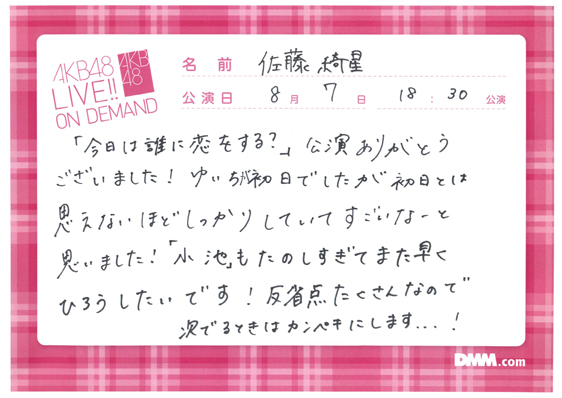 AKB48
LIVE!!
ON DEMAND
AKB
48
名前 佐藤 綺星
公演日 8月 7日 18:30 公演
「今日は誰に恋をする?」公演ありがとう
ございました! ゆいちが初日でしたが初日とは
思えないほどしっかりしていてすごいなーと
思いました!「小池」もたのしすぎてまた早く
ひろうしたいです! 反省点たくさんなので
次でるときはカンペキにします...!
DMM.com